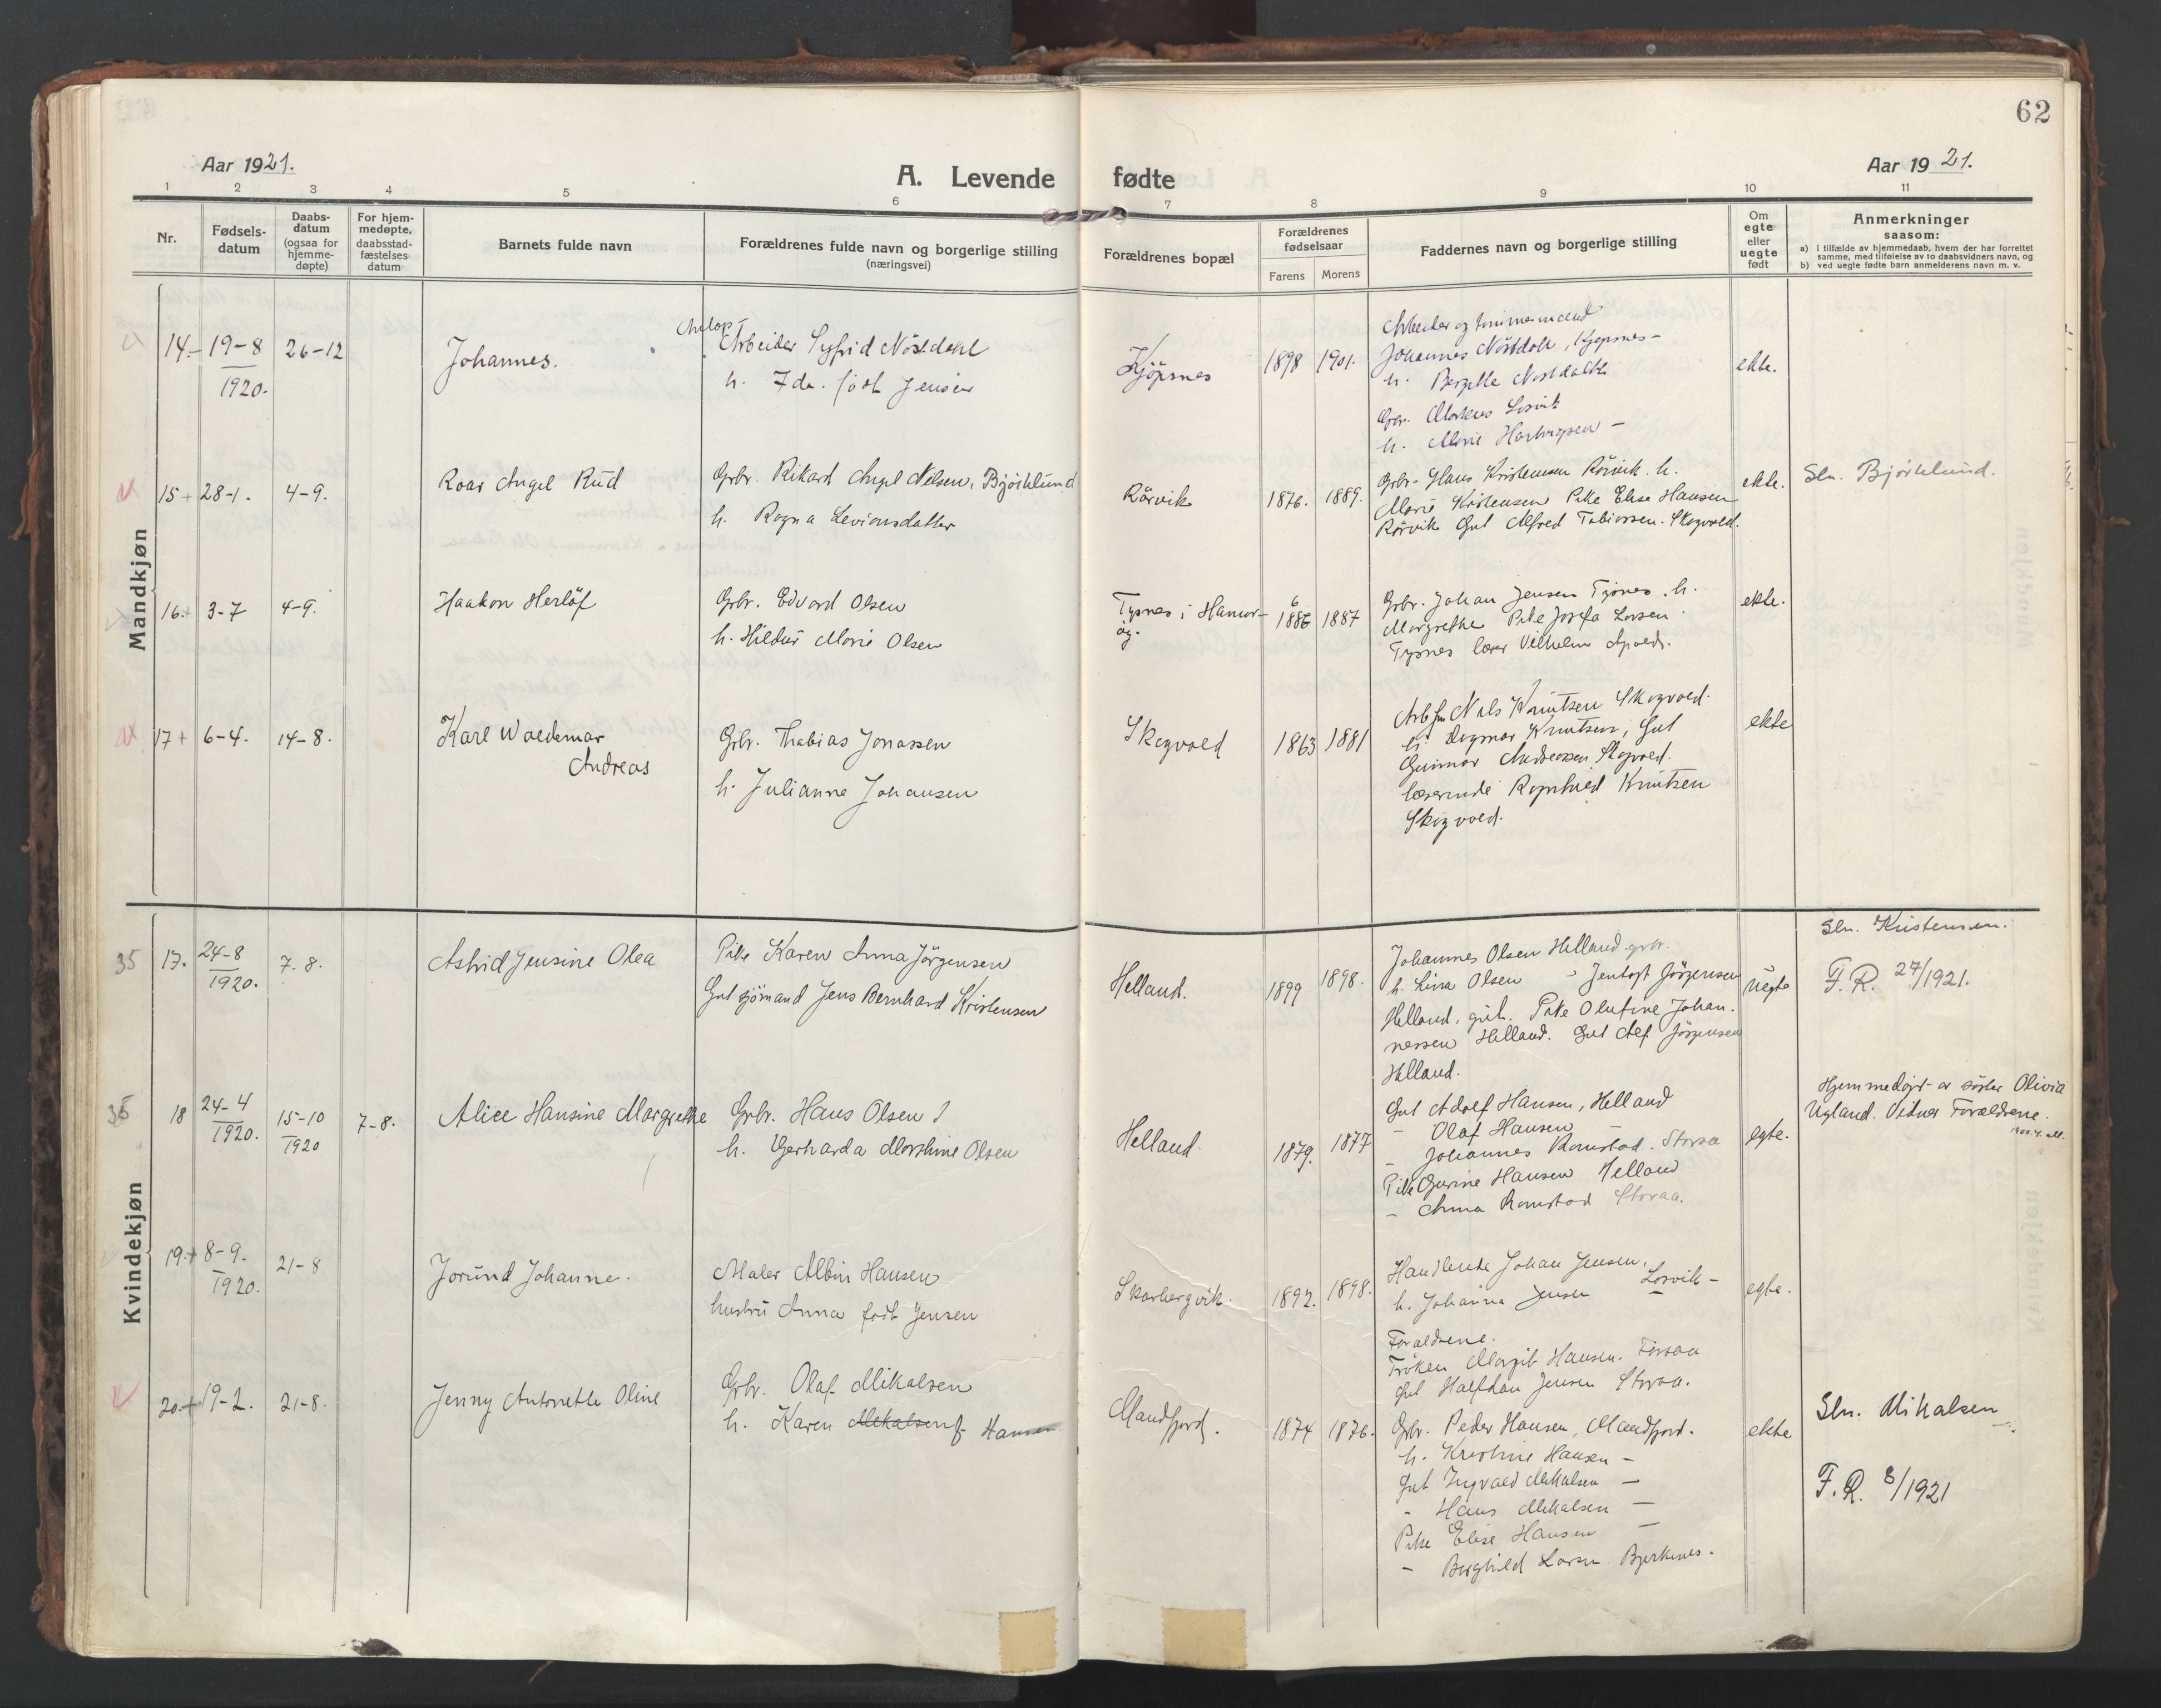 62
Aar 1921.
A. Levende fødte
Aar 1921.
1 2 3 4 5 6 7 8 9 10 11
Nr.
Fødsels-
datum
Daabs-
datum
(ogsaa for
hjemme-
døpte)
For hjem-
medøpte,
daabsstad-
fæstelses
datum
Barnets fulde navn
Forældrenes fulde navn og borgerlige stilling
(næringsvei)
Forældrenes bopæl
Forældrenes
fødselsaar
Farens Morens
Faddernes navn og borgerlige stilling
Om
egte
eller
uegte
født
Anmerkninger
saasom:
a) i tilfælde av hjemmedaab, hvem der har forrettet
samme, med tilføielse av to daabsvidners navn, og
b) ved uegte fødte barn anmelderens navn m. v.
Mandkjøn
14. 19-8
1920.
26-12
Johannes.
Arbeider Sigfrid Nöstdahl
h. Ida. født Jensen
Kjöpsnes
1898 1901.
Arbeider og tømmermand
Johannes Nöstdahl, Kjøpsnes-
h. Bergitte Nöstdahl
Gbr. Markus Losvik
h. Marie Hartvigsen -
ekte.
15+ 28-1. 4-9.
Roar Angel Rud
Grbr. Rikard Angel Nilsen, Bjørklund
h. Ragna Levionsdatter
Rörvik
1876. 1889.
Grbr. Hans Kristensen Rörvik. h.
Marie Kristensen Pike Elise Hansen
Rörvik Gut Alfred Tobiassen. Skogvold.
ekte.
Sln. Bjørklund.
16.+ 3-7 4-9.
Haakon Herlöf
Grbr. Edvard Olsen
h. Hildur Marie Olsen
Tysnes i Hamar-
øy.
1886 6 1887
Grbr. Johan Jensen Tysnes. h.
Margrethe Pike Josefa Larsen
Tysnes lærer Vilhelm
ekte.
17+ 6-4. 14-8.
Karl Waldemar
Andreas
Grbr. Thobias Jonassen
h. Julianne Johansen
Skogvold
1863 1881
Nils Knutsen Skogvold.
h. Dagmar Knutsen, Gut
Gunnar Andreassen Skogvold.
lærerinde Ragnhild Knutsen
Skogvold.
ekte
Kvindekjøn
35 17. 24-8
1920.
7-8.
Astrid Jensine Olea
Pike Karen Anna Jörgensen
Gut sjömand Jens Bernhard Kristensen
Helland.
1899 1898.
Johannes Olsen Helland. grbr.
h. Lina Olsen - Jentoft Jörgensen
Helland, Pike Olufine Johan-
nessen Helland. Gut Alf Jörgensen
Helland.
Uegte
Sln. Kristensen.
F. R. 27/1921.
36 18 24-4
1920.
15-10
1920
7-8.
Alice Hansine Margrethe
Grbr. Hans Olsen
h. Gerharda Martine Olsen
Helland.
1879. 1877
Gut Adolf Hansen, Helland
- Olaf Hansen -
- Johannes Ramstad. Storaa
Pike Gurine Hansen Helland
- Anna Ramstad Storaa.
egte.
Hjemmedøpt av søster Olivia
Ugland. Vidner Forældrene.
19.+ 8-9.
1920.
21-8
Jorund Johanne.
Maler Albin Hansen
hustru Anna født Jensen
Skarbergvik.
1892. 1898.
Handlende Johan Jensen,
h. Johanna Jensen Losvik -
Forældrene.
Fröken Margit Hansen. Forsaa
Gut Halfdan Jensen Storaa.
egte.
20.+ 19-2. 21-8.
Jenny Antonette Oline
Grbr. Olaf Mikalsen
h. Karen Mikalsen f. Hansen
Mandfjord.
1874 1876.
Grbr. Peder Hansen, Mandfjord.
h. Kristine Hansen -
Gut Ingvald Mikalsen -
- Hans Mikalsen -
Pike Elise Hansen -
- Borghild Larsen Bjerknes.
ekte
Sln. Mikalsen
F. R. 8/1921